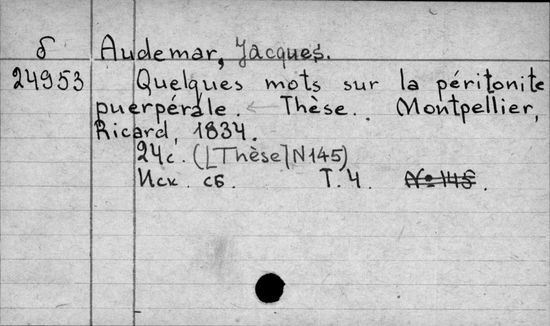 б Audemar, Jacques.
24953 Quelques mots sur la péritonite
puerpérale. ← Thèse. Montpellier,
Ricard, 1834.
24с. ([Thèse] N145)
Иск. сб. Т. 4. № 145.